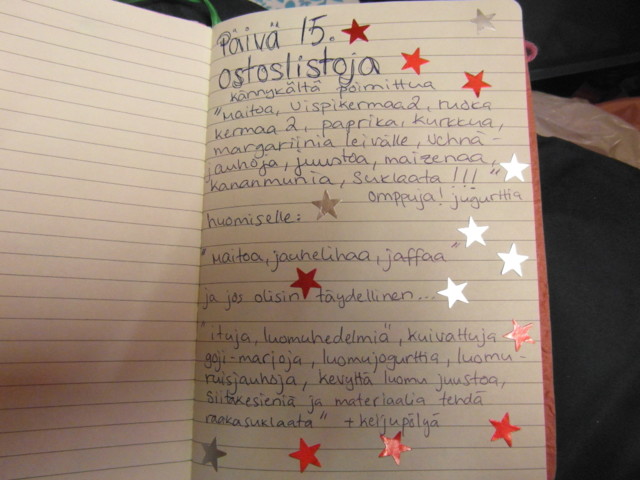 Päivä 15.
ostoslistoja
kännykältä poimittua
"Maitoa, vispikermaa 2, ruoka
kermaa 2, paprika, kurkkua,
margariinia leivälle, vehnä-
jauhoja, juustoa, maizenaa,
kananmunia, suklaata !!! "
omppuja! jugurttia
huomiselle:
"Maitoa, jauhelihaa, jaffaa"
ja jos olisin täydellinen...
"ituja, luomuhedelmiä", kuivattuja
goji-marjoja, luomujogurttia, luomu-
ruisjauhoja, kevyttä luomu juustoa,
siitakesieniä ja materiaalia tehdä
raakasuklaata" + keijupölyä